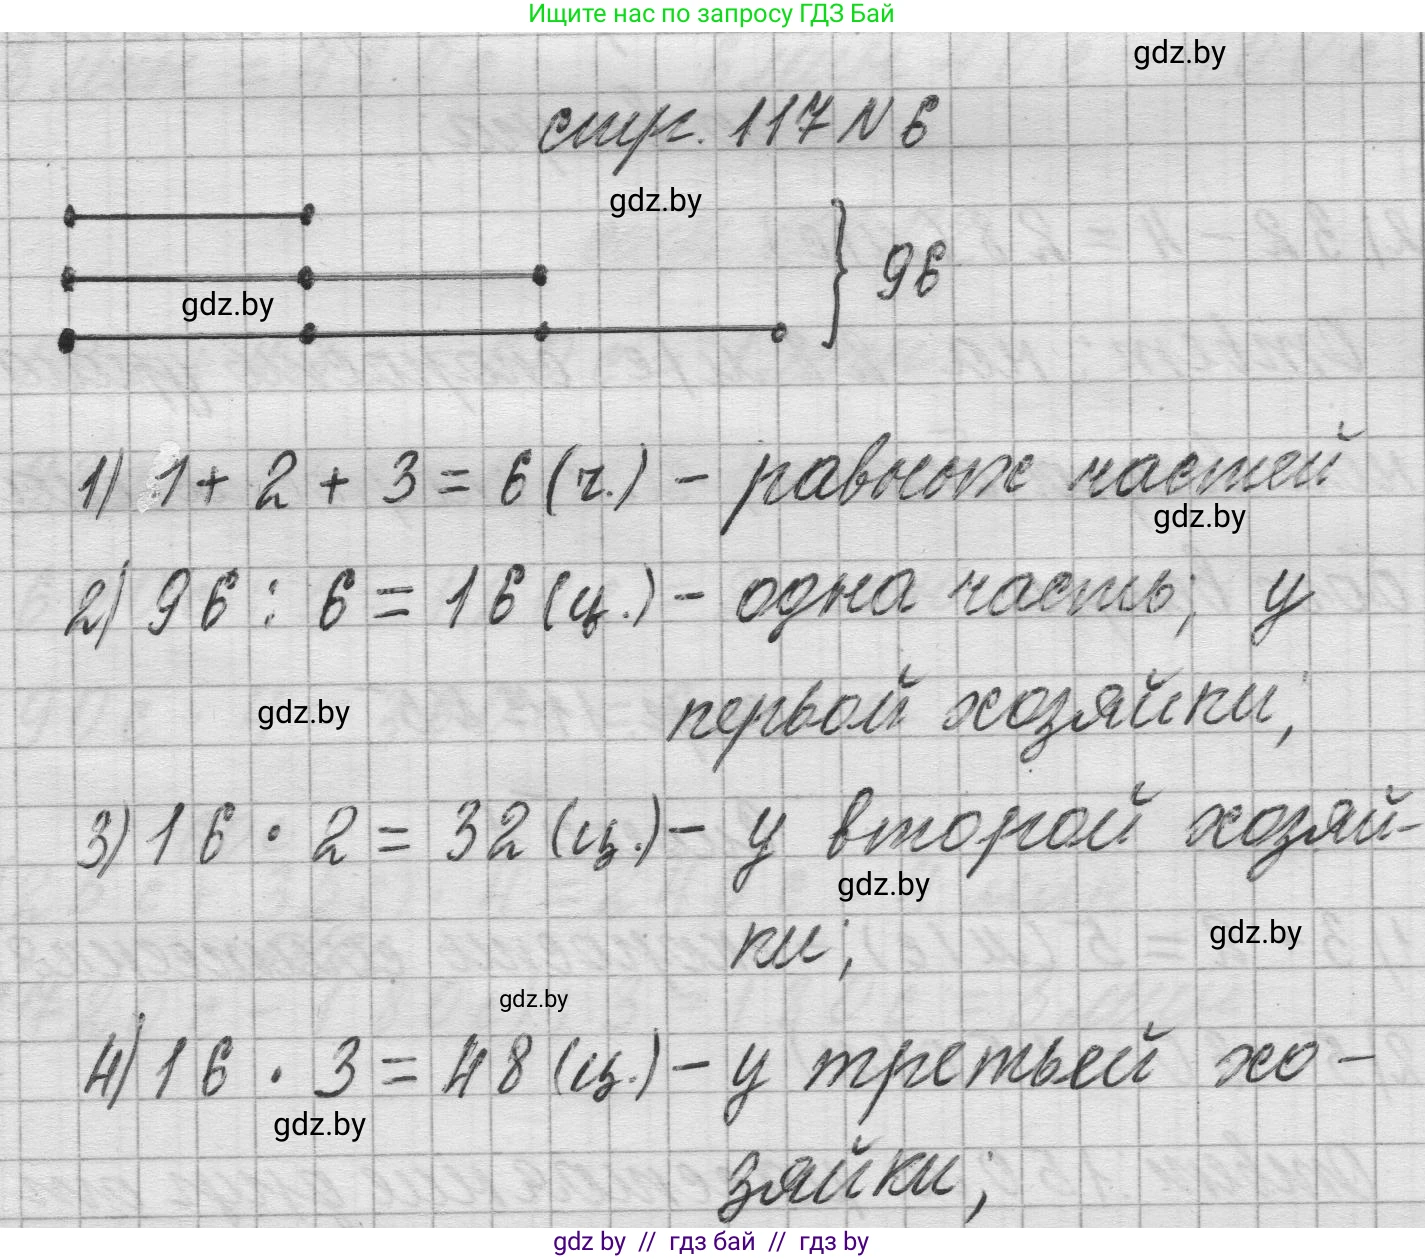 Ищите нас по запросу ГДЗ Бай
gdz.by
стр. 117 N 6
gdz.by
} 96
gdz.by
1) 1 + 2 + 3 = 6 (ч.) - равных частей
gdz.by
2) 96 : 6 = 16 (ц.) - одна часть; у
первой хозяйки;
gdz.by
3) 16 · 2 = 32 (ц.) - у второй хозяй-
gdz.by
ки;
gdz.by
gdz.by
4) 16 · 3 = 48 (ц.) - у третьей хо-
gdz.by
зяйки;
gdz by // гдз бай // гдз by